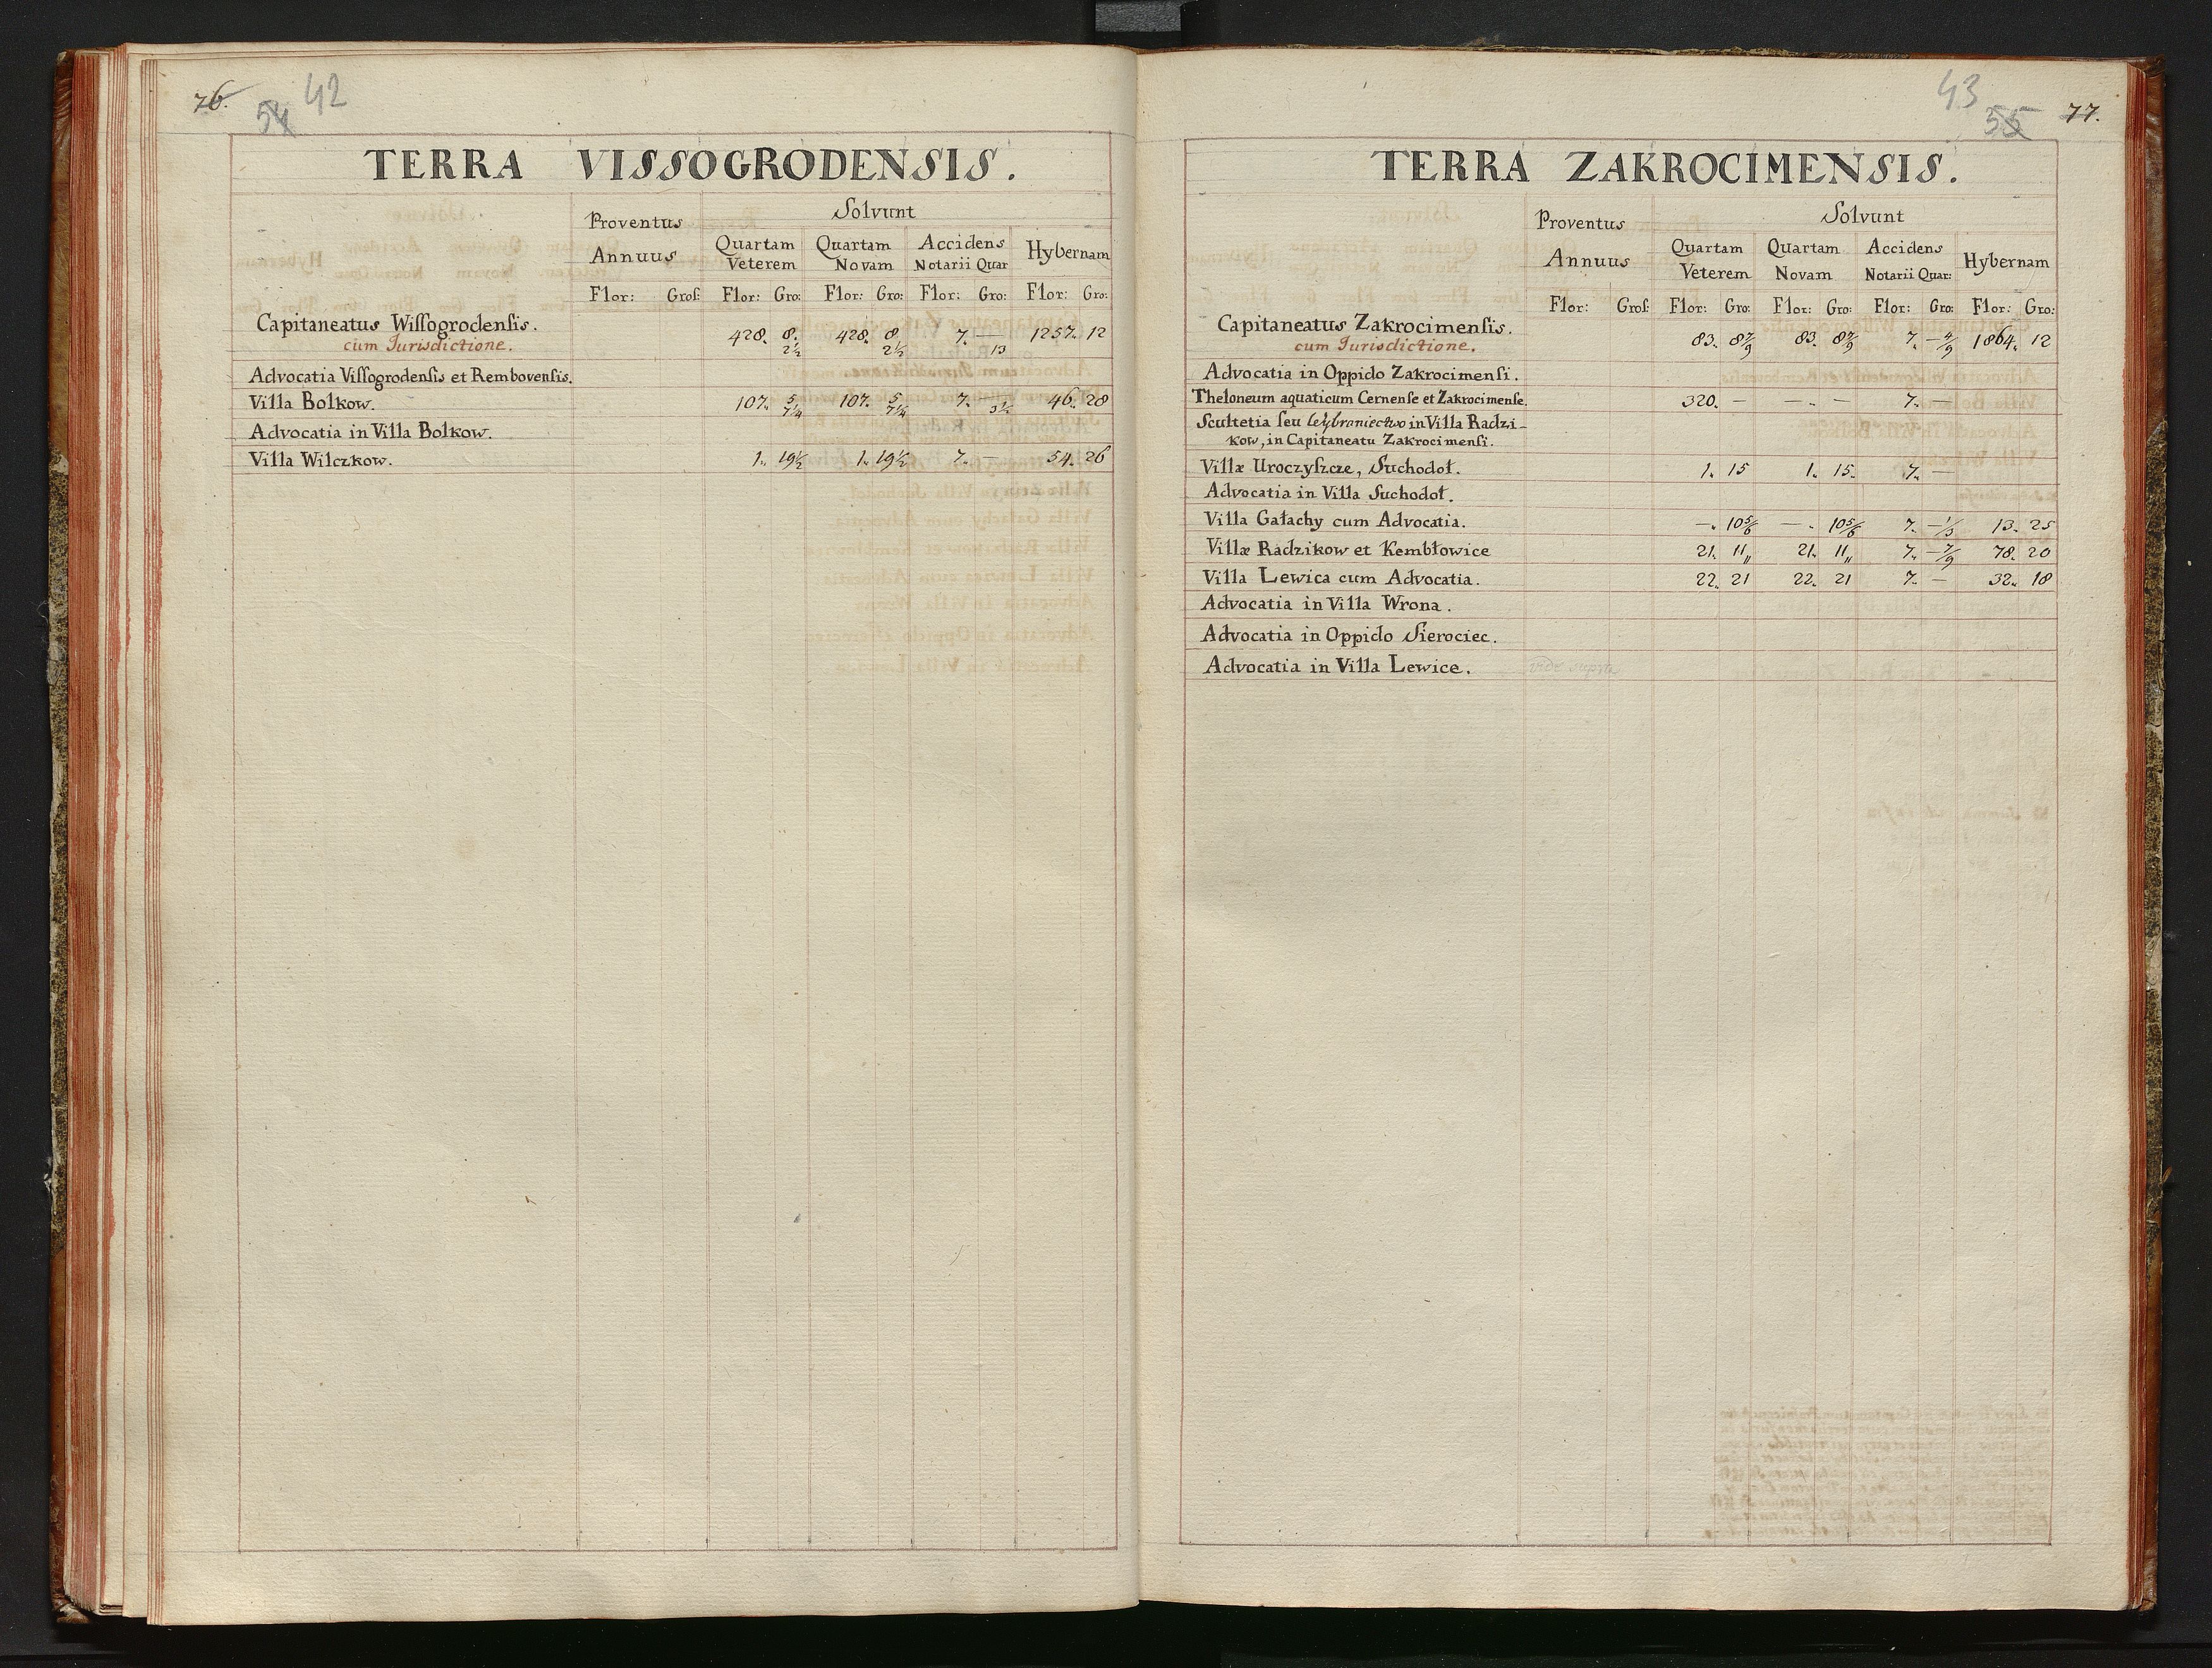 76.
54
42
TERRA VISSOGRODENSIS.
Proventus Annuus
Solvunt
Quartam Veterem
Quartam Novam
Accidens Notarii Quar
Hybernam
Flor: Gros: Flor: Gro: Flor: Gro: Flor: Gro: Flor: Gro:
Capitaneatus Wissogrodensis.
cum Jurisdictione.
428. 8. 2½ 428. 8 2½ 7. — 13 1257. 12
Advocatia Vissogrodensis et Rembovensis.
Villa Bolkow. 107. 5 7¼ 107. 5 7¼ 7. — 3½ 46. 28
Advocatia in Villa Bolkow.
Villa Wilczkow. 1. 19½ 1. 19½ 7. — 54. 26
43
55
77.
TERRA ZAKROCIMENSIS.
Proventus Annuus
Solvunt
Quartam Veterem
Quartam Novam
Accidens Notarii Quar:
Hybernam
Flor: Gros: Flor: Gro: Flor: Gro: Flor: Gro: Flor: Gro:
Capitaneatus Zakrocimensis.
cum Jurisdictione.
83. 8 7/9 83. 8 7/9 7. — 4/9 1864. 12
Advocatia in Oppido Zakrocimensi.
Theloneum aquaticum Cernense et Zakrocimense. 320. — —. — 7. —
Scultetia seu Łybraniectwo in Villa Radzi-
kow, in Capitaneatu Zakrocimensi.
Villæ Uroczyszcze, Suchodoł. 1. 15 1. 15. 7. —
Advocatia in Villa Suchodoł.
Villa Gałachy cum Advocatia. —. 10 5/6 —. 10 5/6 7. — 1/3 13. 25
Villæ Radzikow et Kembłowice 21. 11„ 21. 11„ 7. — 7/9 78. 20
Villa Lewica cum Advocatia. 22. 21 22. 21 7. — 32. 18
Advocatia in Villa Wrona.
Advocatia in Oppido Sierociec.
Advocatia in Villa Lewice. vide supra